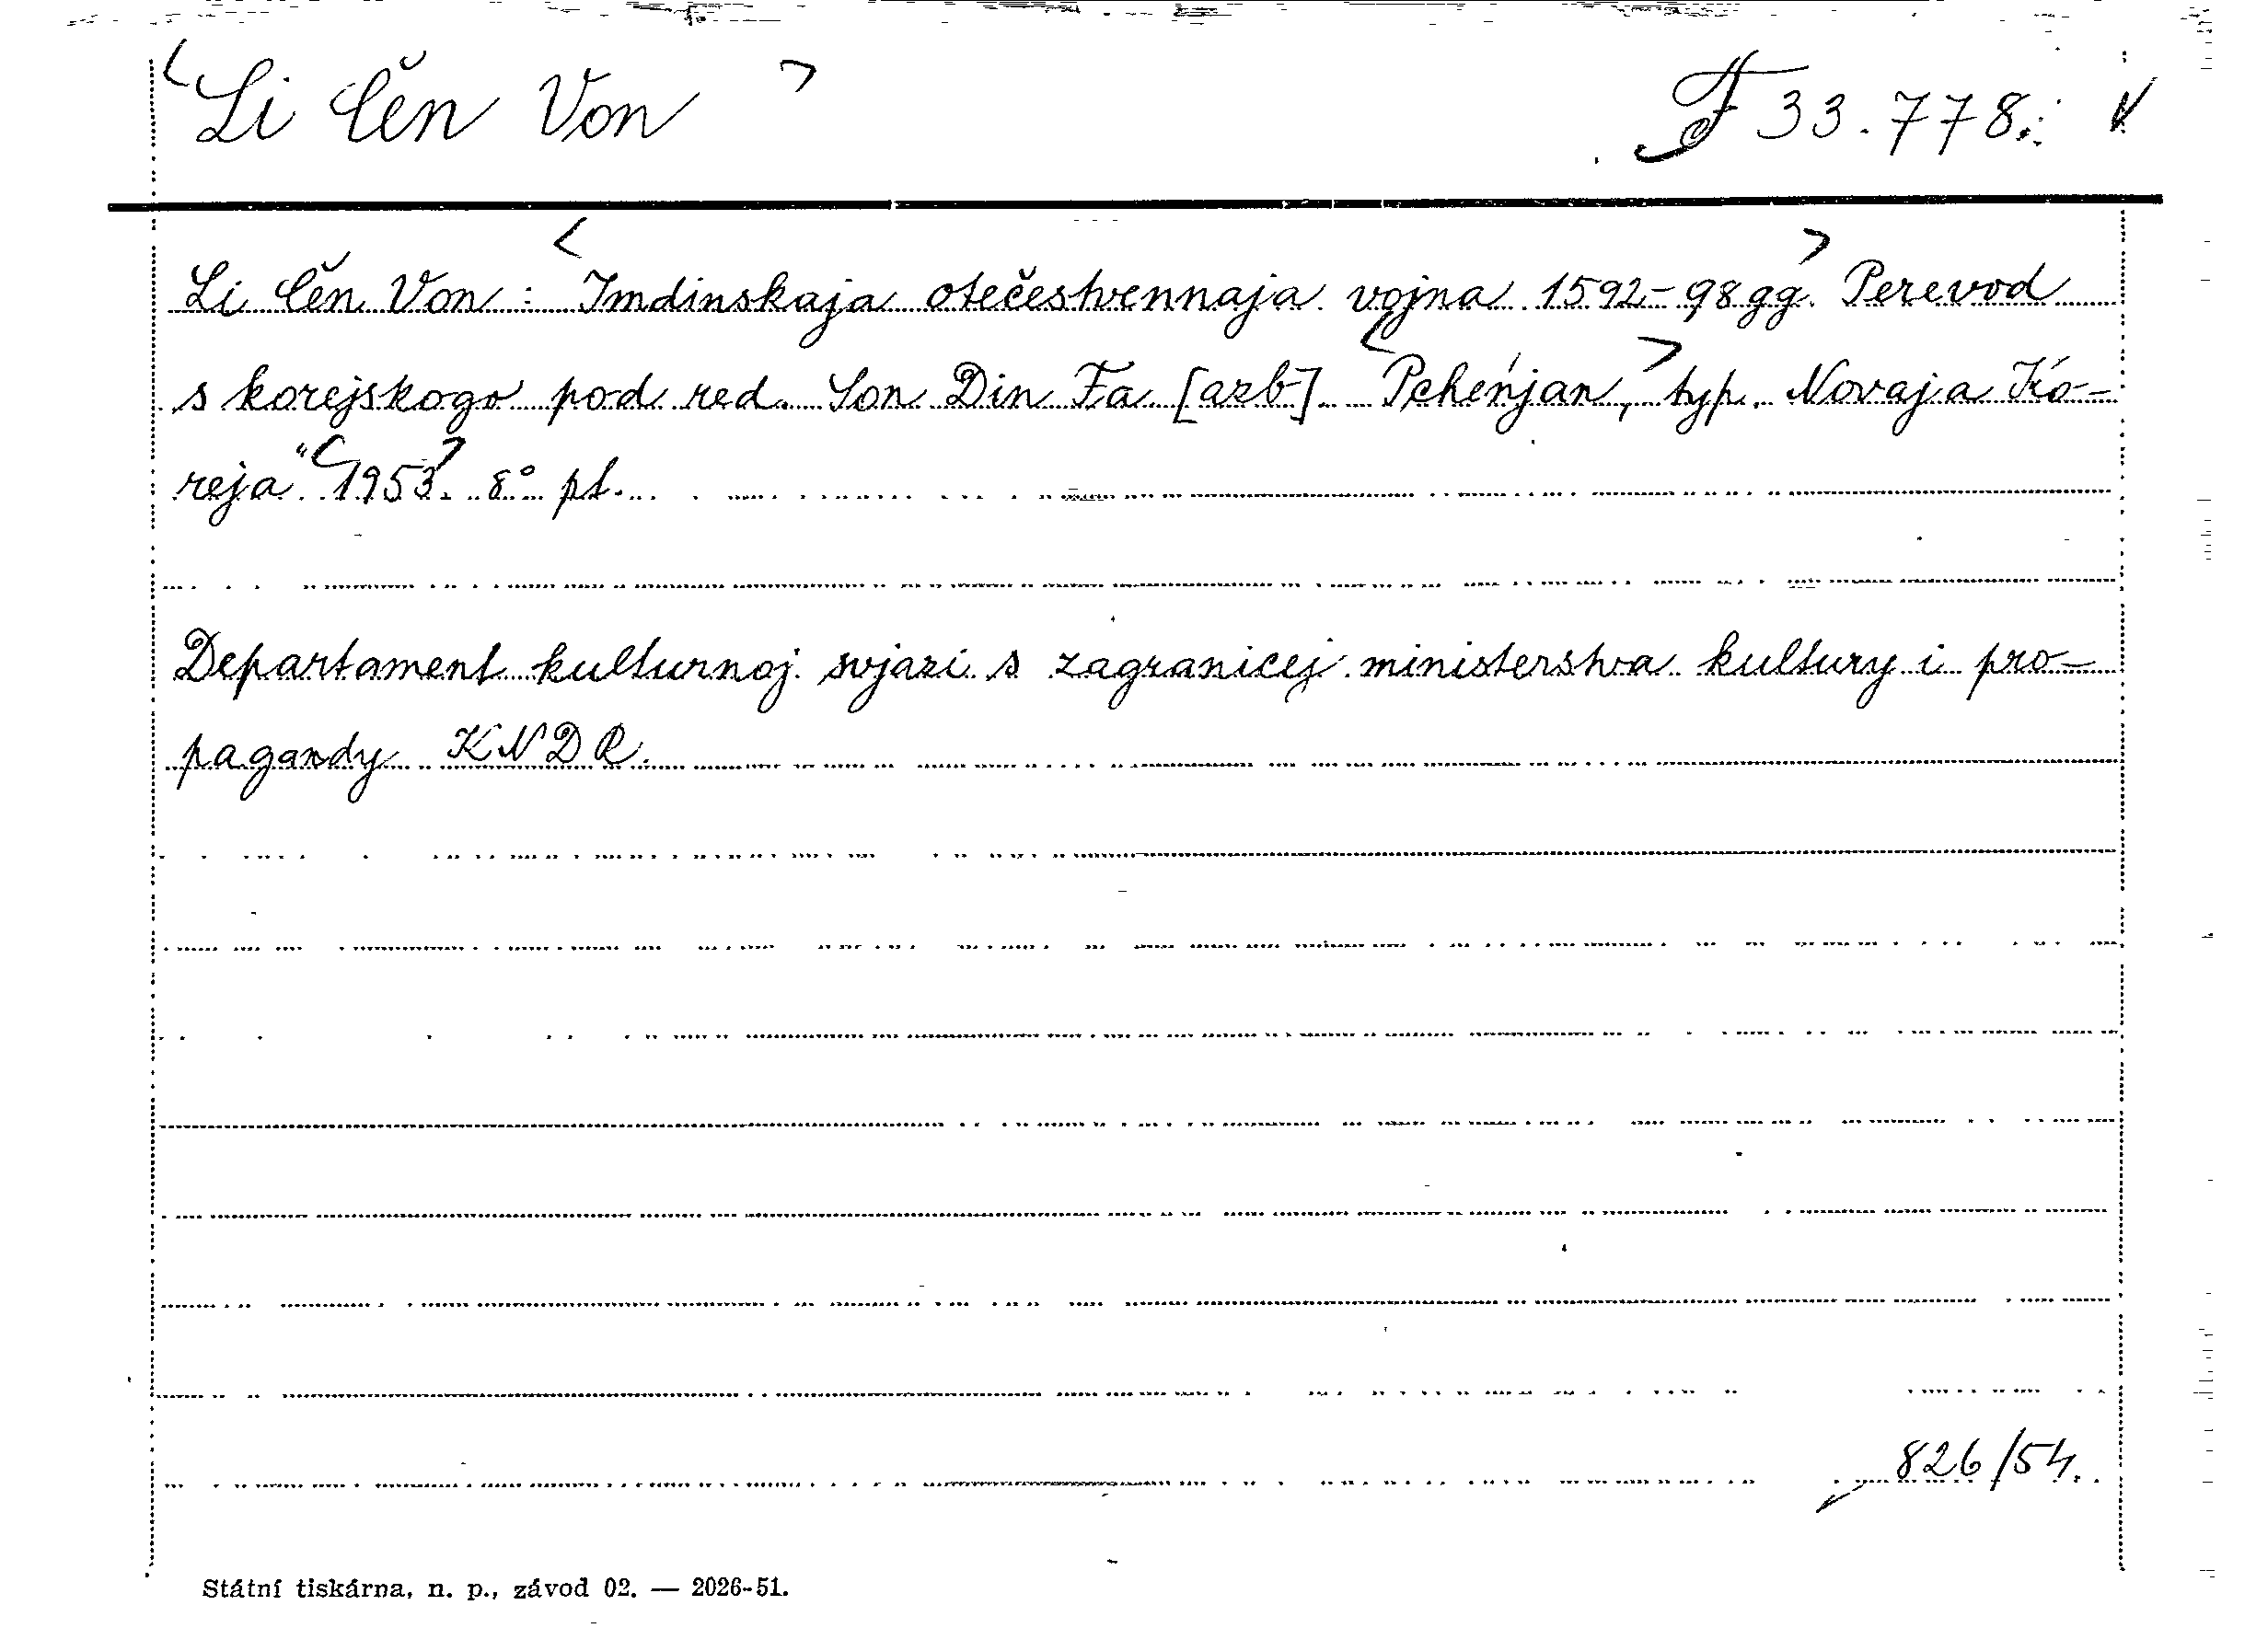 <Li Čěn Von> F 33.778. V
Li Čěn Von: <Imdinskaja otečestvennaja vojna 1592-98 gg.> Perevod
s korejskogo pod red. Son Din Fa [azb] <Pcheńjan,> typ. Novaja Ko-
reja" <1953>. 8° pl.
Departament kulturnoj svjazi s zagranicej ministerstva kultury i pro-
pagandy KNDR.
826/54.
Státní tiskárna, n. p., závod 02. — 2026-51.